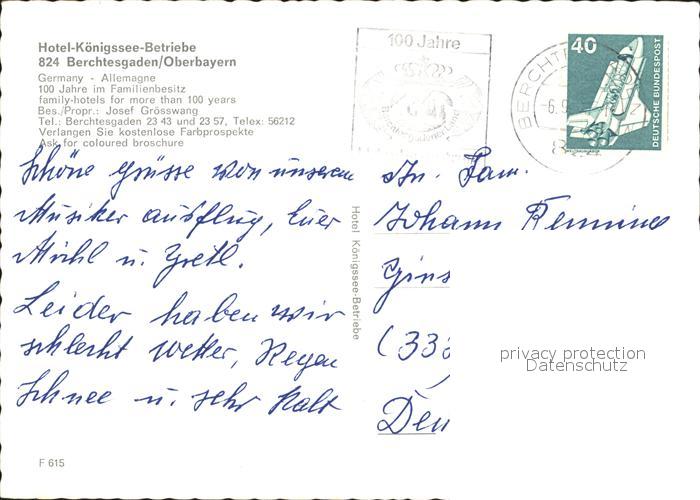 Hotel-Königssee-Betriebe
824 Berchtesgaden/Oberbayern
Germany - Allemagne
100 Jahre im Familienbesitz
family-hotels for more than 100 years
Bes./Propr.: Josef Grösswang
Tel.: Berchtesgaden 23 43 und 23 57, Telex: 56212
Verlangen Sie kostenlose Farbprospekte
Ask for coloured broschure
Schöne Grüsse von unserem
Musiker ausflug, Euer
Michl u. Gretl.
Leider haben wir
schlecht Wetter, Regen
Schnee u. sehr kalt
F 615
Hotel Königssee-Betriebe
100 Jahre
BERCHT
-6.9
40
DEUTSCHE BUNDESPOST
An. Fam.
Johann
Gins
(33
Den
privacy protection
Datenschutz